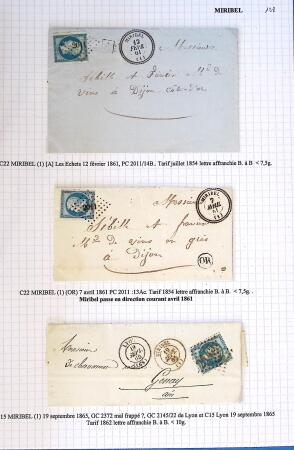 MIRIBEL
MIRIBEL
12
FEVR
61
(1)
Messieurs
Sébille et
vins à Dijon Côte-d'or
C22 MIRIBEL (1) [A] Les Echets 12 février 1861, PC 2011/14B.. Tarif juillet 1854 lettre affranchie B. à B. < 7,5g.
2011
MIRIBEL
7
AVRIL
(1)
Messieurs
Sébille et
Mds de vins en gros
à Dijon
OR
C22 MIRIBEL (1) (OR) 7 avril 1861 PC 2011 :13Ac. Tarif 1854 lettre affranchie B. à B. < 7,5g. .
Miribel passe en direction courant avril 1861
19
Monsieur
Genay
ain
15 MIRIBEL (1) 19 septembre 1865, GC 2372 mal frappé ?, GC 2145/22 de Lyon et C15 Lyon 19 septembre 1865
Tarif 1862 lettre affranchie B. à B. < 10g.